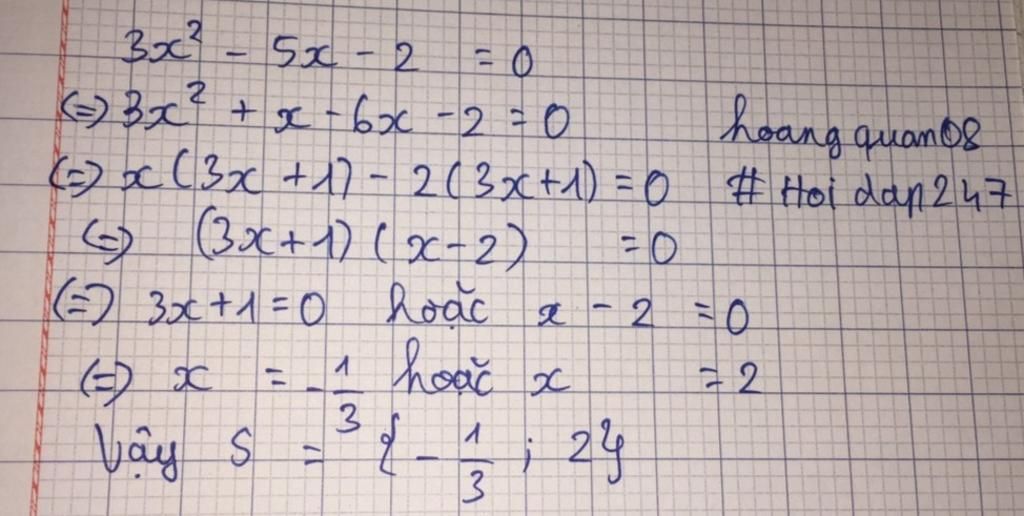 3x² - 5x - 2 = 0
(=) 3x² + x - 6x - 2 = 0 hoangquan08
(=) x(3x + 1) - 2(3x+1) = 0 # Hoi dap247
(=) (3x+1)(x-2) = 0
(=) 3x+1=0 hoặc x - 2 = 0
(=) x = -1/3 hoặc x = 2
Vậy S = {-1/3; 2}